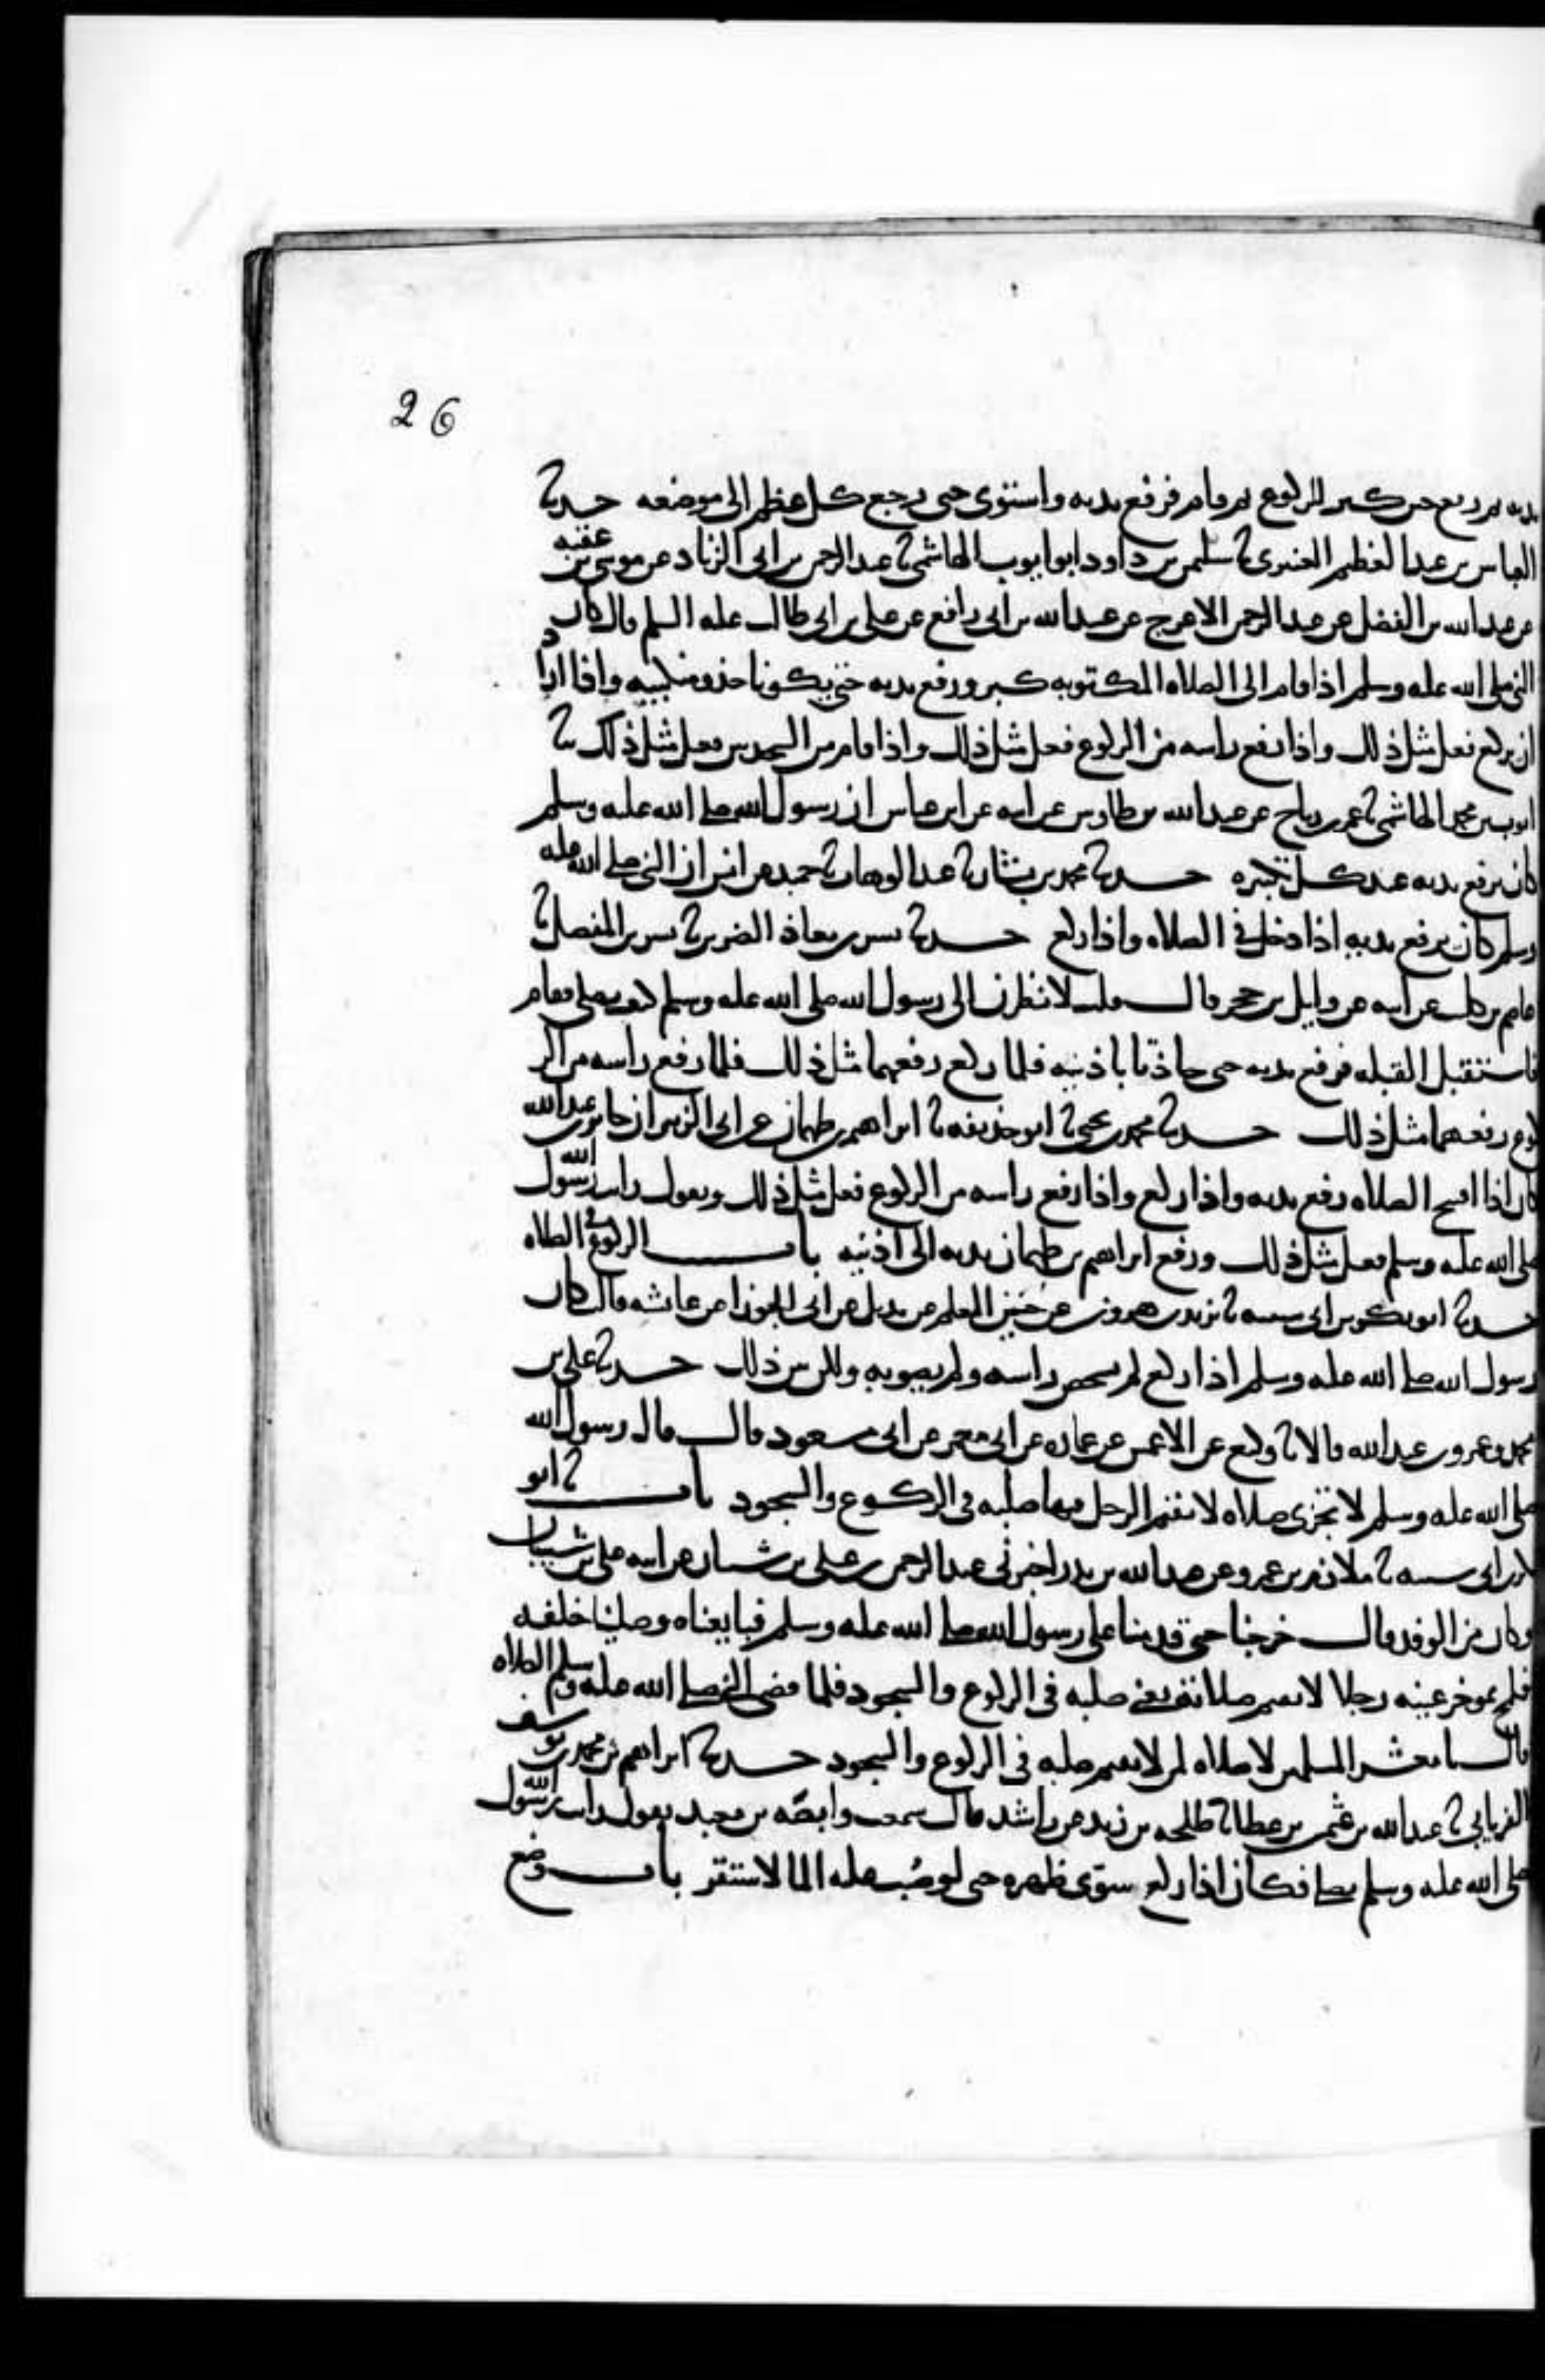 26
يديه ثم رفع حين كبر للركوع ثم قام فرفع يديه واستوى حتى رجع كل عظم الى موضعه حدثنا
العباس بن عبد العظيم العنبري ثنا سليمن بن داود ابو ايوب الهاشمي ثنا عبد الرحمن بن ابي الزناد عن موسى بن عقبه
عن عبد الله بن الفضل عن عبد الرحمن الاعرج عن عبيد الله بن ابي رافع عن علي بن ابي طالب عليه السلم قال كان
النبي صلى الله عليه وسلم اذا قام الى الصلاه المكتوبه كبر ورفع يديه حتى يكونا حذو منكبيه واذا اراد
ان يركع فعل مثل ذلك واذا رفع راسه من الركوع فعل مثل ذلك واذا قام من السجدتين فعل مثل ذلك ثنا
ايوب بن محمد الهاشمي ثنا عمر بن رياح عن عبد الله بن طاوس عن ابيه عن ابن عباس ان رسول الله صلى الله عليه وسلم
كان يرفع يديه عند كل تكبيره حدثنا محمد بن بشار ثنا عبد الوهاب ثنا حميد عن انس ان النبي صلى الله عليه
وسلم كان يرفع يديه اذا دخل في الصلاه واذا ركع حدثنا بشر بن معاذ الضرير ثنا بشر بن المفضل ثنا
عاصم بن كليب عن ابيه عن وايل بن حجر قال قلت لانظرن الى رسول الله صلى الله عليه وسلم كيف يصلي فقام
فاستقبل القبله فرفع يديه حتى حاذتا باذنيه فلما ركع رفعهما مثل ذلك فلما رفع راسه من الر
كوع رفعهما مثل ذلك حدثنا محمد بن يحيى ثنا ابو حذيفه ثنا ابراهيم بن طهمان عن ابي الزبير ان جابر بن عبد الله
كان اذا افتتح الصلاه رفع يديه واذا ركع واذا رفع راسه من الركوع فعل مثل ذلك ويقول رايت رسول الله
صلى الله عليه وسلم فعل مثل ذلك ورفع ابراهيم بن طهمان يديه الى اذنيه باب الركوع في الصلاه
حدثنا ابو بكر بن ابي شيبه ثنا يزيد بن هرون عن حسين المعلم عن بديل عن ابي الجوزا عن عائشه قالت كان
رسول الله صلى الله عليه وسلم اذا ركع لم يشخص راسه ولم يصوبه ولكن بين ذلك حدثنا علي بن
محمد وعمرو بن عبد الله قالا ثنا وكيع عن الاعمش عن عماره عن ابي معمر عن ابي مسعود قال قال رسول الله
صلى الله عليه وسلم لا تجزي صلاه لا يقيم الرجل فيها صلبه في الركوع والسجود باب ثنا ابو
بكر بن ابي شيبه ثنا ملازم بن عمرو عن عبد الله بن بدر اخبرني عبد الرحمن بن علي بن شيبان عن ابيه علي بن شيبان
وكان من الوفد قال خرجنا حتى قدمنا على رسول الله صلى الله عليه وسلم فبايعناه وصلينا خلفه
فلمح بموخر عينه رجلا لا يقيم صلاته يعني صلبه في الركوع والسجود فلما قضى النبي صلى الله عليه وسلم الصلاه
قال يا معشر المسلمين لا صلاه لمن لا يقيم صلبه في الركوع والسجود حدثنا ابراهيم بن محمد بن يوسف
الفريابي ثنا عبد الله بن عثمن بن عطا ثنا طلحه بن زيد عن راشد قال سمعت وابصه بن معبد يقول رايت رسول الله
صلى الله عليه وسلم يصلي فكان اذا ركع سوى ظهره حتى لو صب عليه الما لاستقر باب وضع